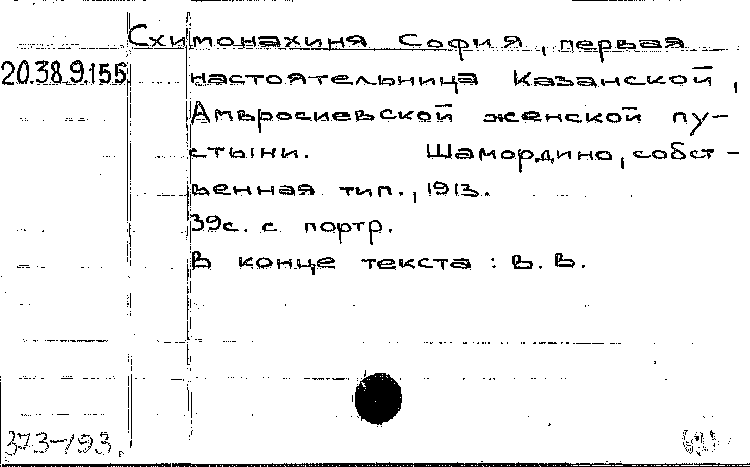 Схимонахиня София, первая
20.38.9.155 настоятельница Казанской,
Амвросиевской женской пу-
стыни. Шамордино, собст-
венная тип., 1913.
39с. с портр.
В конце текста : В. В.
373-193.